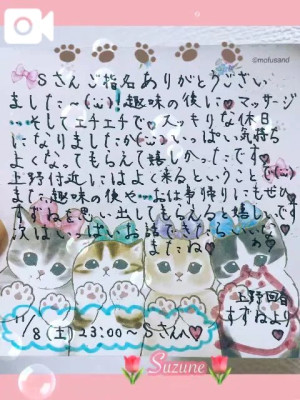 ©mofusand
Sさんご指名ありがとうござい
ました…(¨)!趣味の後に♥マッサージ
…そしてエチエチで、スッキリな休日
になりましたか(¨)いっぱい気持ち
よくなってもらえて嬉しかったです♥
上野付近にはよく来るということ(¨)
また趣味の後や…お仕事帰りにもぜひ
すずねを思い出してもらえると嬉しいです
次はいっぱいお話できたらいいな
またね♥
上野回春
すずねより
11/8(土)23:00〜Sさんへ♥
Suzune